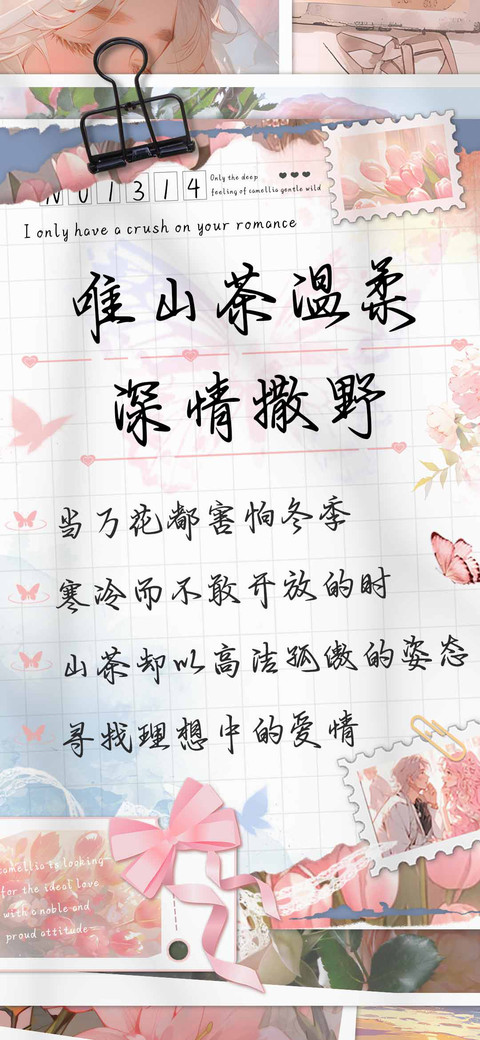 NO1314
Only the deep
feeling of camellia gentle wild
I only have a crush on your romance
唯山茶温柔
深情撒野
当万花都害怕冬季
寒冷而不敢开放的时
山茶却以高洁孤傲的姿态
寻找理想中的爱情
camellia is looking
for the ideal love
with a noble and
proud attitude